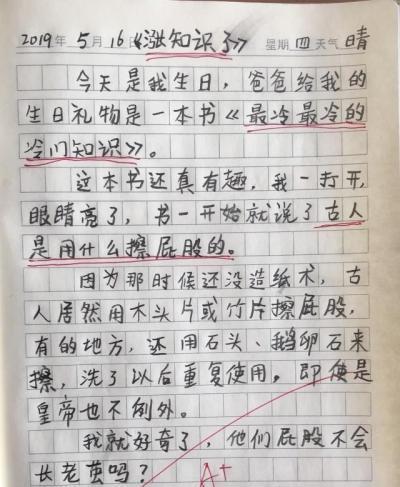 2019年 5月 16日《涨知识了》 星期 四 天气 晴
今天是我生日，爸爸给我的
生日礼物是一本书《最冷最冷的
冷门知识》。
这本书还真有趣，我一打开，
眼睛亮了，书一开始就说了古人
是用什么擦屁股的。
因为那时候还没造纸术，古
人居然用木头片或竹片擦屁股，
有的地方，还用石头、鹅卵石来
擦，洗了以后重复使用。即使是
皇帝也不例外。
我就好奇了，他们屁股不会
长老茧吗？
A+